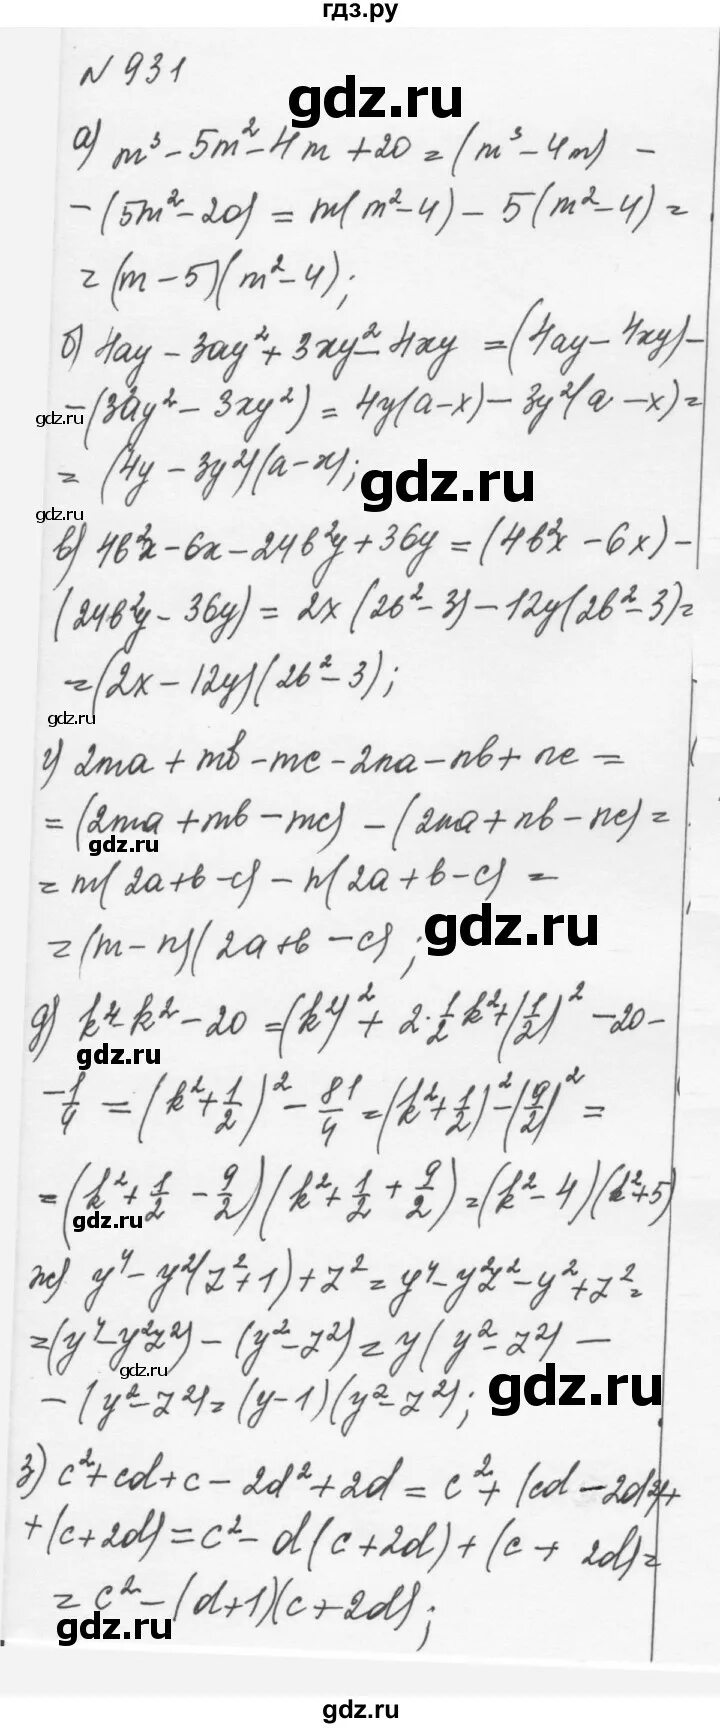 гдз.ру
N 931
gdz.ru
а) m³ - 5m² - 4m + 20 = (m³ - 4m) -
- (5m² - 20) = m(m² - 4) - 5(m² - 4) =
= (m - 5)(m² - 4);
б) 4ay - 3ay² + 3xy² - 4xy = (4ay - 4xy) -
gdz.ru
- (3ay² - 3xy²) = 4y(a - x) - 3y²(a - x) =
= (4y - 3y²)(a - x);
gdz.ru
gdz.ru
в) 4b²x - 6x - 24b²y + 36y = (4b²x - 6x) -
(24b²y - 36y) = 2x(2b² - 3) - 12y(2b² - 3) =
= (2x - 12y)(2b² - 3);
gdz.ru
г) 2ma + mb - mc - 2na - nb + nc =
= (2ma + mb - mc) - (2na + nb - nc) =
gdz.ru
= m(2a + b - c) - n(2a + b - c) =
gdz.ru
= (m - n)(2a + b - c);
д) k⁴ - k² - 20 = (k²)² + 2·1/2 k² + (1/2)² - 20 -
gdz.ru
- 1/4 = (k² + 1/2)² - 81/4 = (k² + 1/2)² - (9/2)² =
= (k² + 1/2 - 9/2)(k² + 1/2 + 9/2) = (k² - 4)(k² + 5)
gdz.ru
ж) y⁴ - y²(z² + 1) + z² = y⁴ - y²z² - y² + z² =
= (y⁴ - y²z²) - (y² - z²) = y(y² - z²) -
gdz.ru
- (y² - z²) = (y - 1)(y² - z²);
gdz.ru
з) c² + cd + c - 2d² + 2d = c² + (cd - 2d²) +
+ (c + 2d) = c² - d(c + 2d) + (c + 2d) =
= c² - (d + 1)(c + 2d);
gdz.ru
gdz.ru